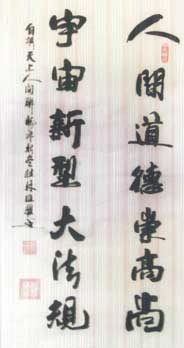 人間道德崇高尚
宇宙新型大法規
自撰天上人间聯